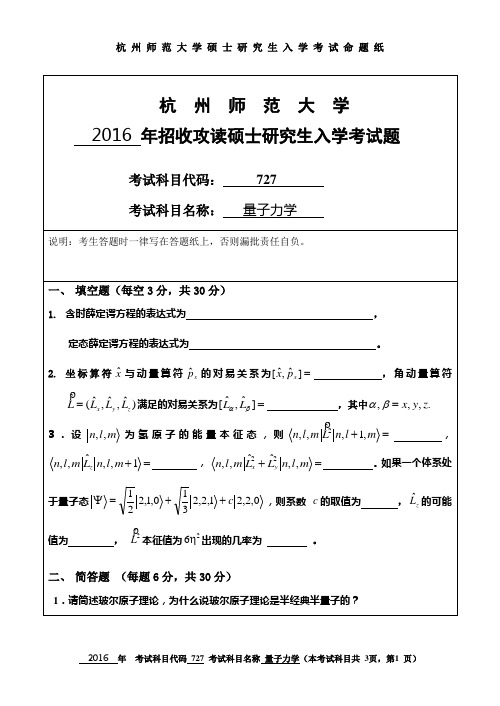 杭 州 师 范 大 学 硕 士 研 究 生 入 学 考 试 命 题 纸
杭 州 师 范 大 学
2016 年招收攻读硕士研究生入学考试题
考试科目代码: 727
考试科目名称: 量子力学
说明:考生答题时一律写在答题纸上,否则漏批责任自负。
一、 填空题(每空3分,共30分)
1. 含时薛定谔方程的表达式为 ,
定态薛定谔方程的表达式为 。
2. 坐标算符 x̂ 与动量算符 p̂ₓ 的对易关系为[x̂, p̂ₓ]= ,角动量算符
ρ̂L = (L̂ₓ, L̂ᵧ, L̂_z) 满足的对易关系为[L̂_α, L̂_β]= ,其中 α, β = x, y, z.
3.设 |n,l,m⟩ 为氢原子的能量本征态,则 ⟨n,l,m|ρ̂L²|n,l+1,m⟩= ,
⟨n,l,m|L̂_z|n,l,m+1⟩= ,⟨n,l,m|L̂ₓ²+L̂ᵧ²|n,l,m⟩= 。如果一个体系处
于量子态|Ψ⟩=√(1/2)|2,1,0⟩+√(1/3)|2,2,1⟩+c|2,2,0⟩,则系数 c 的取值为 ,L̂_z 的可能
值为 , ρ̂L² 本征值为 6η² 出现的几率为 。
二、 简答题 (每题6分,共30分)
1.请简述玻尔原子理论,为什么说玻尔原子理论是半经典半量子的?
2016 年 考试科目代码 727 考试科目名称 量子力学(本考试科目共 3页,第1 页)